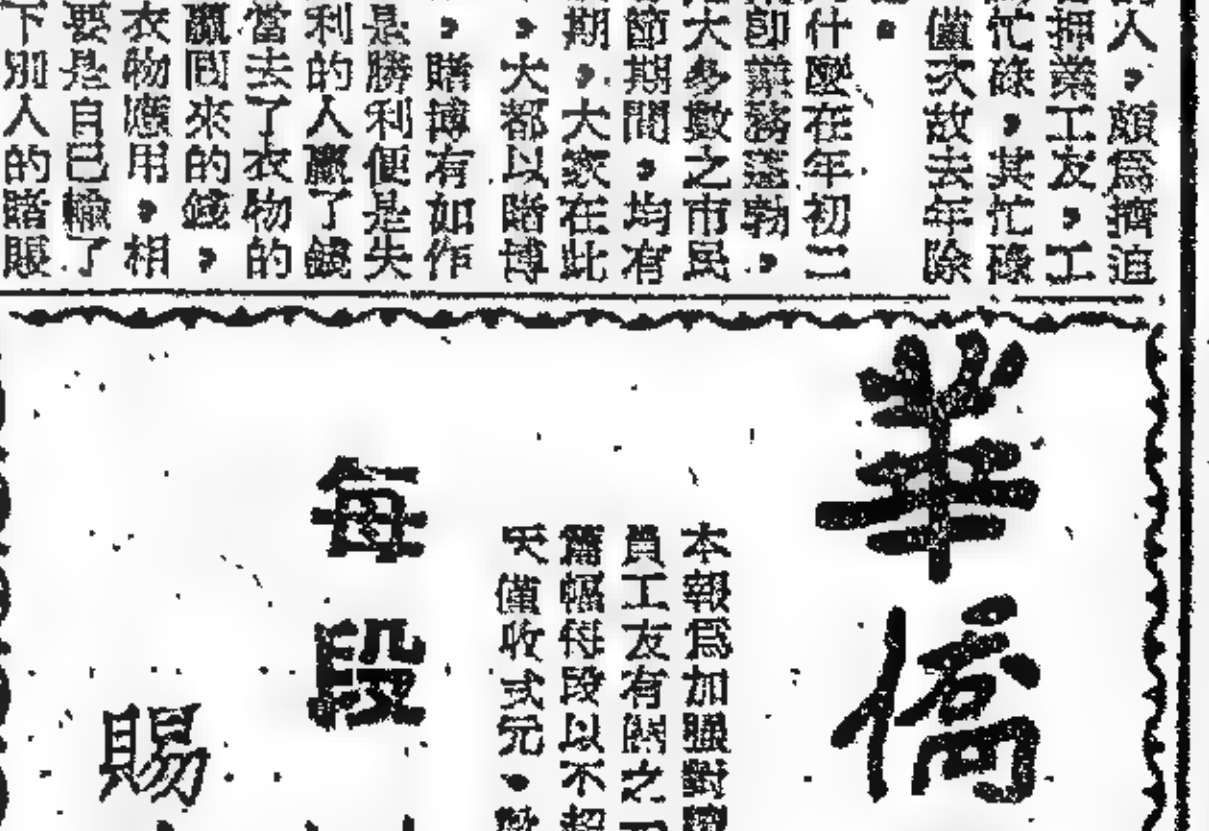 人，頗爲擠迫
押業工友，工
忙碌，其忙碌
僅次故去年除
。
什麼在年初三
卽業務蓬勃，
大多數之市民
節期間，均有
期，大家在此
，大都以賭博
，賭博有如作
是勝利便是失
利的人贏了錢
當去了衣物的
贏回來的錢，
衣物應用，相
要是自己輸了
下別人的賭賬
華僑
本報爲加強對讀
員工友有關之
篇幅每段以不超
天僅收弍元。歡
每段
賜